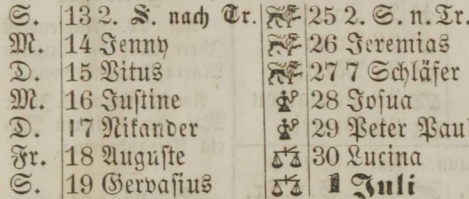 S. 13 2. S. nach Tr. 25 2. S. n. Tr.
M. 14 Jenny 26 Jeremias
D. 15 Vitus 27 7 Schläfer
M. 16 Justine 28 Josua
D. 17 Nikander 29 Peter Paul
Fr. 18 Auguste 30 Lucina
S. 19 Gervasius 1 Juli